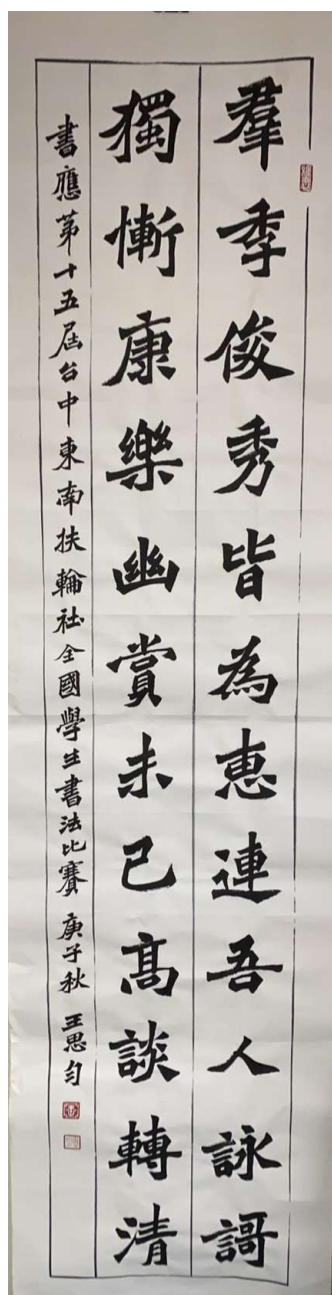 羣季俊秀皆為惠連吾人詠謌
獨慚康樂幽賞未已高談轉清
書應第十五屆台中東南扶輪社全國學生書法比賽 庚子秋 王思勻